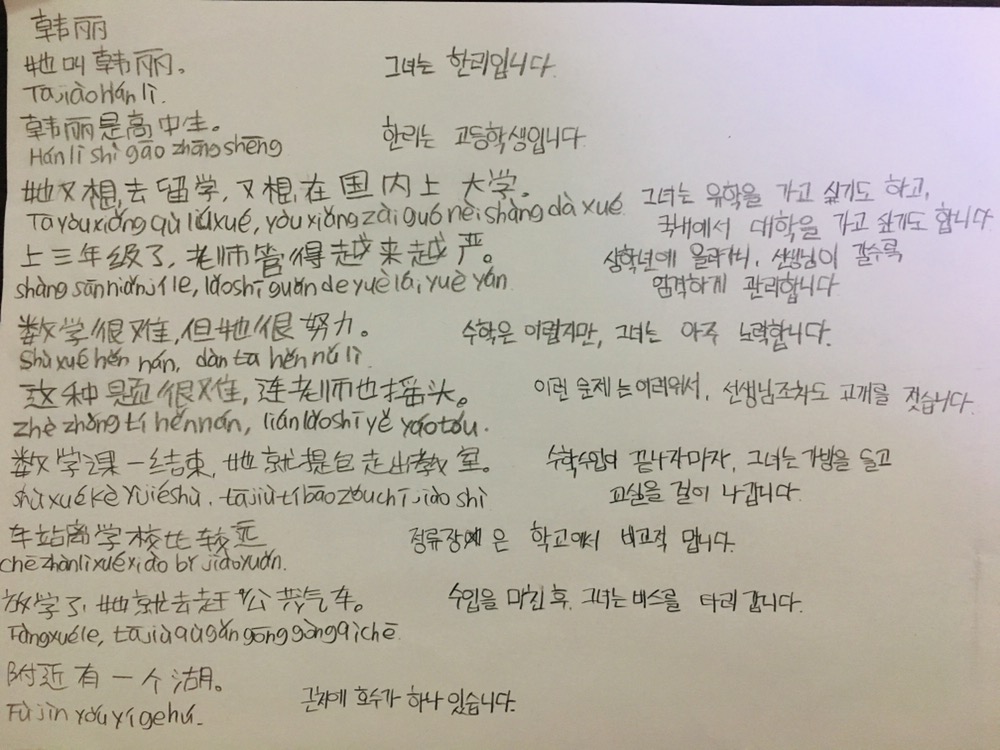 韩丽
她叫韩丽。 그녀는 한리입니다.
Tā jiào Hán lì.
韩丽是高中生。 한리는 고등학생입니다.
Hán lì shì gāo zhōng shēng
她又想,去留学,又想,在国内上大学。 그녀는 유학을 가고 싶기도 하고,
Tā yòu xiǎng qù liú xué, yòu xiǎng zài guó nèi shàng dà xué 국내에서 대학을 가고 싶기도 합니다
上三年级了,老师管得越来越严。 삼학년에 올라가니, 선생님이 갈수록
shàng sān nián jí le, lǎo shī guǎn de yuè lái yuè yán 엄격하게 관리합니다
数学很难,但她很努力。 수학은 어렵지만, 그녀는 아주 노력합니다.
Shù xué hěn nán, dàn tā hěn nǔ lì
这种题很难,连老师也摇头。 이런 문제는 어려워서, 선생님조차도 고개를 젓습니다.
zhè zhǒng tí hěn nán, lián lǎo shī yě yáo tóu.
数学课一结束,她就提包走出教室。 수학수업이 끝나자마자, 그녀는 가방을 들고
shù xué kè yì jié shù, tā jiù tí bāo zǒu chū jiào shì 교실을 걸어 나갑니다.
车站离学校比较远 정류장은 학교에서 비교적 멉니다.
chē zhàn lí xué xiào bǐ jiào yuǎn.
放学了,她就去赶公共汽车。 수업을 마친 후, 그녀는 버스를 타러 갑니다.
Fàng xué le, tā jiù qù gǎn gōng gòng qì chē
附近有一个湖。 근처에 호수가 하나 있습니다.
Fù jìn yǒu yí ge hú.